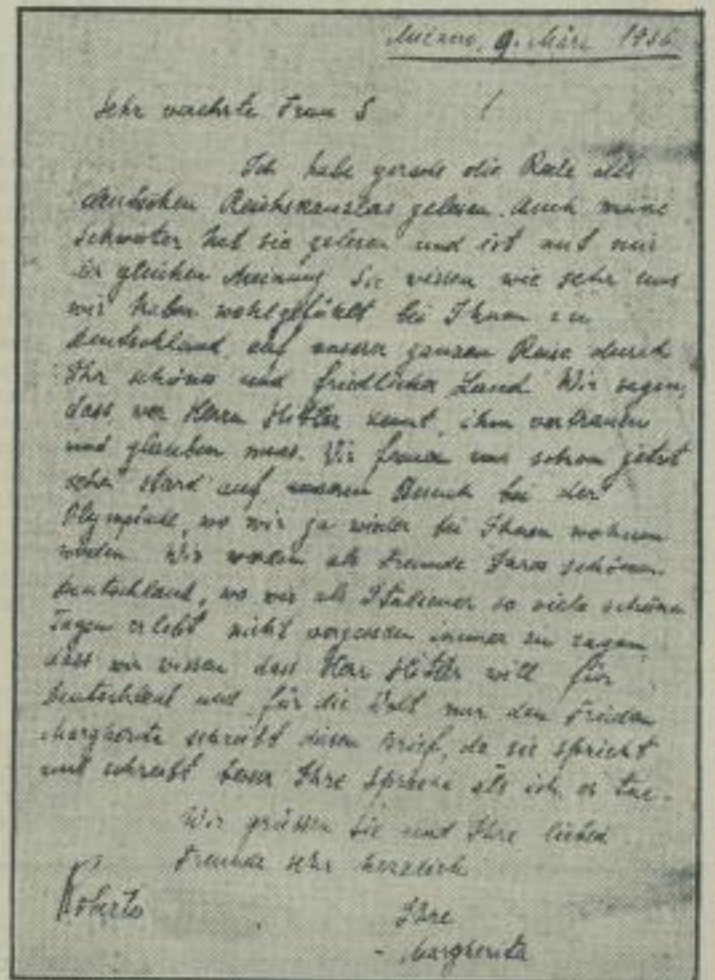 Milano, 9. März 1936
Sehr verehrte Frau S !
Ich habe gerade die Rede des
deutschen Reichskanzlers gelesen. Auch meine
Schwester hat sie gelesen und ist mit mir
der gleichen Meinung. Sie wissen wie sehr uns
wir haben wohlgefühlt bei Ihnen in
Deutschland, auf unserer ganzen Reise durch
Ihr schönes und friedliches Land. Wir sagen,
dass, wer Herrn Hitler kennt, ihm vertrauen
und glauben muss. Wir freuen uns schon jetzt
sehr auf unseren Besuch bei der
Olympiade, wo wir ja wieder bei Ihnen wohnen
werden. Wir werden als Freunde Ihres schönen
Deutschland, wo wir als Italiener so viele schöne
Tagen erlebt nicht vergessen immer zu sagen,
dass wir wissen dass Herr Hitler will für
Deutschland und für die Welt nur den Frieden
Margherita schreibt diesen Brief, da sie spricht
und schreibt besser Ihre Sprache als ich es tue.
Wir grüssen Sie und Ihre lieben
Freunde sehr herzlich
Roberto
Ihre
- Margherita